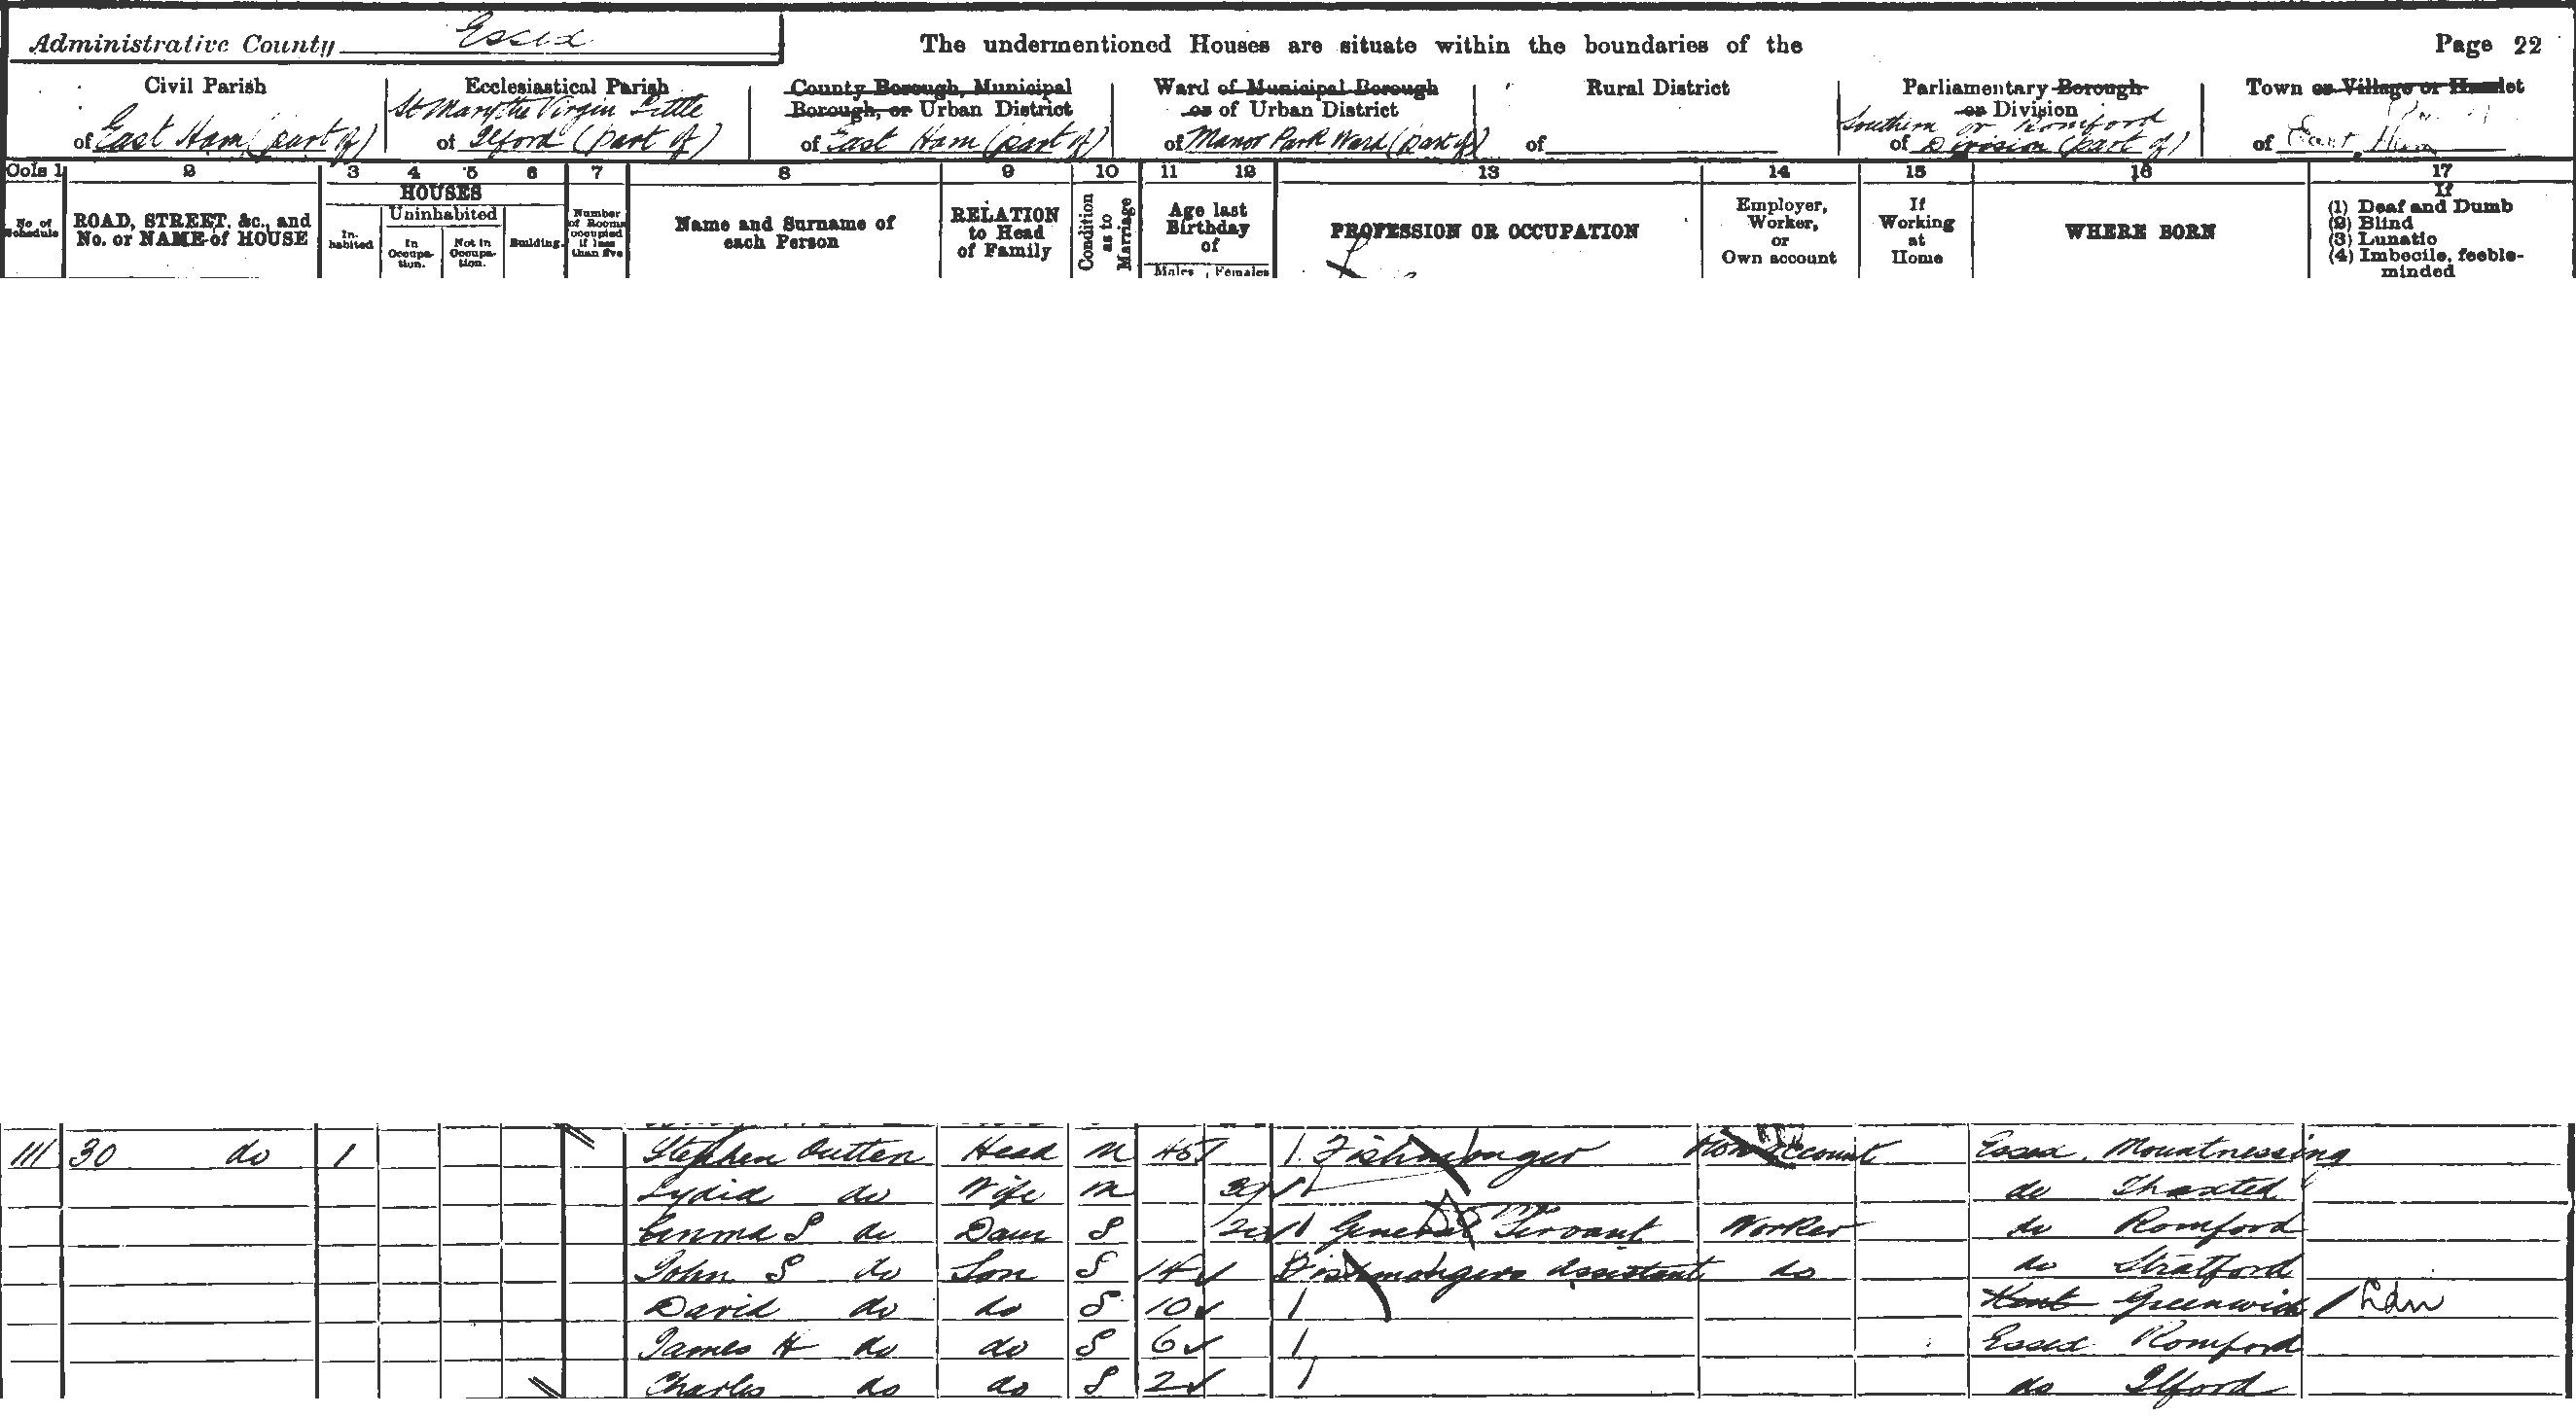 Administrative County Essex
The undermentioned Houses are situate within the boundaries of the
Page 22
Civil Parish
of East Ham (part of)
Ecclesiastical Parish
St Mary the Virgin Little
of Ilford (part of)
County Borough, Municipal
Borough, or Urban District
of East Ham (part of)
Ward of Municipal Borough
or of Urban District
of Manor Park Ward (part of)
Rural District
of
Parliamentary Borough
or Division
Southern or Romford
of Division (part of)
Town or Village or Hamlet
of East Ham
Cols 1 2 3 4 5 6 7 8 9 10 11 12 13 14 15 16 17
No. of Schedule
ROAD, STREET, &c., and
No. or NAME of HOUSE
HOUSES
In-
habited
Uninhabited
In
Occupa-
tion.
Not in
Occupa-
tion.
Building.
Number
of Rooms
occupied
if less
than five
Name and Surname of
each Person
RELATION
to Head
of Family
Condition
as to
Marriage
Age last
Birthday
of
Males Females
PROFESSION OR OCCUPATION
Employer,
Worker,
or
Own account
If
Working
at
Home
WHERE BORN
If
(1) Deaf and Dumb
(2) Blind
(3) Lunatic
(4) Imbecile, feeble-
minded
111 30 do 1 Stephen Outten Head M 45 Fishmonger Own Account Essex Mountnessing
Lydia do Wife M do Thaxted
Emma S do Daur S 20 General Servant Worker do Romford
John S do Son S 14 Fishmongers Assistant do do Stratford
David do do S 10 Kent Greenwich Ldn
James H do do S 6 Essex Romford
Charles do do S 2 do Ilford